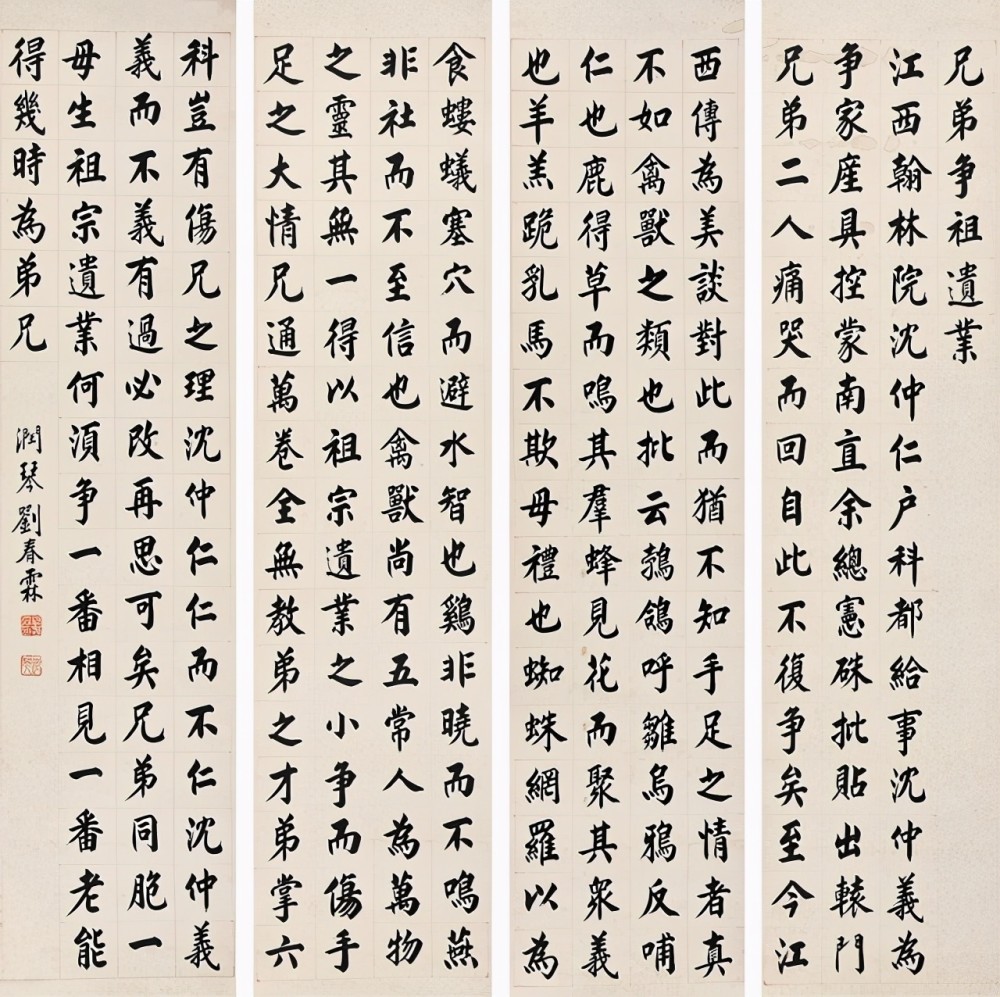 兄弟争祖遺業
江西翰林院沈仲仁户科都給事沈仲義為
争家産具控蒙南直余總憲硃批貼出轅門
兄弟二人痛哭而回自此不復争矣至今江
西傳為美談對此而猶不知手足之情者真
不如禽獸之類也批云鵓鴿呼雛烏鴉反哺
仁也鹿得草而鳴其羣蜂見花而聚其衆義
也羊羔跪乳馬不欺母禮也蜘蛛網羅以為
食螻蟻塞穴而避水智也鷄非曉而不鳴燕
非社而不至信也禽獸尚有五常人為萬物
之靈其無一得以祖宗遺業之小争而傷手
足之大情兄通萬卷全無教弟之才弟掌六
科豈有傷兄之理沈仲仁仁而不仁沈仲義
義而不義有過必改再思可矣兄弟同胞一
母生祖宗遺業何須争一番相見一番老能
得幾時為弟兄
潤琴劉春霖